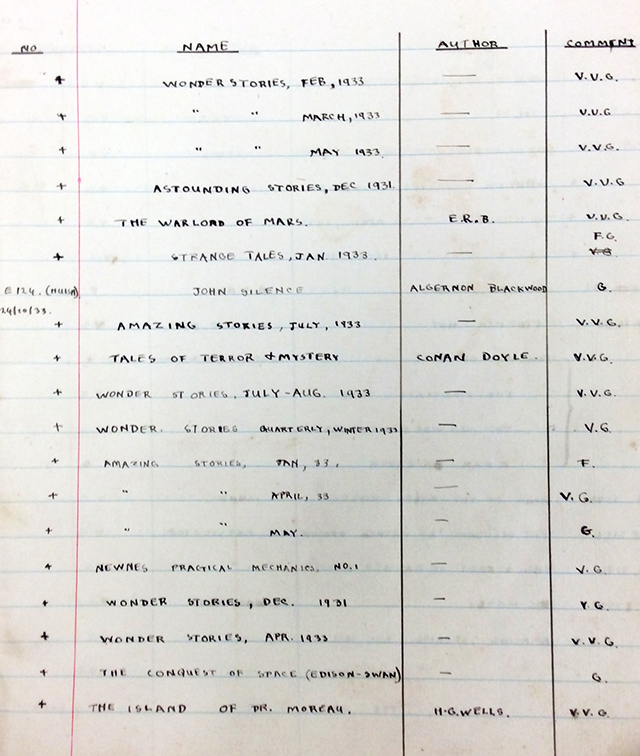 NO NAME AUTHOR COMMENT
+ WONDER STORIES, FEB, 1933 — V.V.G.
+ " " MARCH, 1933 — V.V.G
+ " " MAY 1933 — V.V.G.
+ ASTOUNDING STORIES, DEC 1931. — V.V.G
+ THE WARLORD OF MARS. E.R.B. V.V.G.
F.G.
+ STRANGE TALES, JAN 1933. —
E124. JOHN SILENCE ALGERNON BLACKWOOD G.
24/10/33.
+ AMAZING STORIES, JULY, 1933 — V.V.G.
+ TALES OF TERROR & MYSTERY CONAN DOYLE. V.V.G.
+ WONDER STORIES, JULY-AUG. 1933 — V.V.G.
+ WONDER. STORIES QUARTERLY, WINTER 1933 — V.G.
+ AMAZING STORIES, JAN, 33. — F.
+ " " APRIL, 33 — V.G.
+ " " MAY. — G.
+ NEWNES PRACTICAL MECHANICS, NO.1 — V.G.
+ WONDER STORIES, DEC. 1931 — V.G.
+ WONDER STORIES, APR. 1933 — V.V.G.
+ THE CONQUEST OF SPACE (EDISON-SWAN) — G.
+ THE ISLAND OF DR. MOREAU. H.G.WELLS. V.V.G.